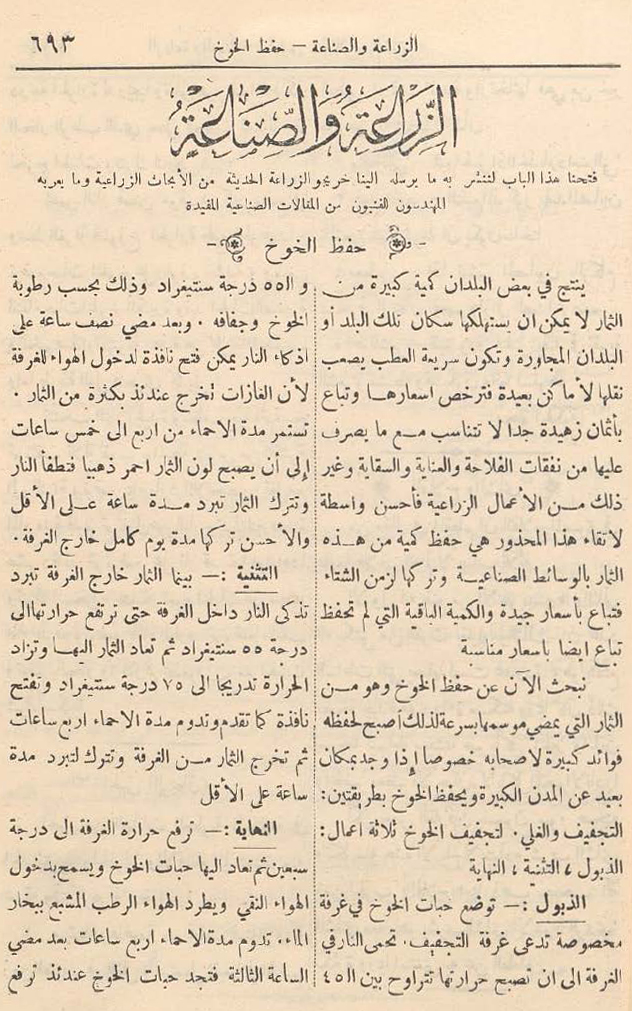 الزراعة والصناعة — حفظ الخوخ ٦٩٣
الزِّرَاعَةُ وَالصِّنَاعَةُ
فتحنا هذا الباب لننشر به ما يرسله الينا خريجو الزراعة الحديثة من الأبحاث الزراعية وما يعربه
المهندسون الفنيون من المقالات الصناعية المفيدة
- حفظ الخوخ -
ينتج في بعض البلدان كمية كبيرة من
الثمار لا يمكن ان يستهلكها سكان تلك البلد أو
البلدان المجاورة وتكون سريعة العطب يصعب
نقلها لأماكن بعيدة فترخص اسعارها وتباع
بأثمان زهيدة جدا لا تتناسب مع ما يصرف
عليها من نفقات الفلاحة والعناية والسقاية وغير
ذلك من الأعمال الزراعية فأحسن واسطة
لاتقاء هذا المحذور هي حفظ كمية من هذه
الثمار بالوسائط الصناعية وتركها لزمن الشتاء
فتباع بأسعار جيدة والكمية الباقية التي لم تحفظ
تباع ايضا باسعار مناسبة
نبحث الآن عن حفظ الخوخ وهو من
الثمار التي يمضي موسمها بسرعة لذلك أصبح لحفظه
فوائد كبيرة لاصحابه خصوصا إذا وجد بمكان
بعيد عن المدن الكبيرة ويحفظ الخوخ بطريقتين:
التجفيف والغلي. لتجفيف الخوخ ثلاثة اعمال:
الذبول ، التثنية ، النهاية
الذبول :— توضع حبات الخوخ في غرفة
مخصوصة تدعى غرفة التجفيف. تحمى النار في
الغرفة الى ان تصبح حرارتها تتراوح بين ال٤٥
و ال٥٥ درجة سنتيغراد وذلك بحسب رطوبة
الخوخ وجفافه . وبعد مضي نصف ساعة على
اذكاء النار يمكن فتح نافذة لدخول الهواء للغرفة
لأن الغازات تخرج عندئذ بكثرة من الثمار .
تستمر مدة الاحماء من اربع الى خمس ساعات
إلى أن يصبح لون الثمار احمر ذهبيا فتطفأ النار
وتترك الثمار تبرد مدة ساعة على الأقل
والأحسن تركها مدة يوم كامل خارج الغرفة.
التثنية :— بينما الثمار خارج الغرفة تبرد
تذكى النار داخل الغرفة حتى ترتفع حرارتها الى
درجة ٥٥ سنتيغراد ثم تعاد الثمار اليها وتزاد
الحرارة تدريجا الى ٧٥ درجة سنتيغراد وتفتح
نافذة كما تقدم وتدوم مدة الاحماء اربع ساعات
ثم تخرج الثمار من الغرفة وتترك لتبرد مدة
ساعة على الأقل
النهاية :— ترفع حرارة الغرفة الى درجة
سبعين ثم تعاد اليها حبات الخوخ ويسمح بدخول
الهواء النقي ويطرد الهواء الرطب المشبع ببخار
الماء. تدوم مدة الاحماء اربع ساعات بعد مضي
الساعة الثالثة فتجد حبات الخوخ عندئذ ترفع